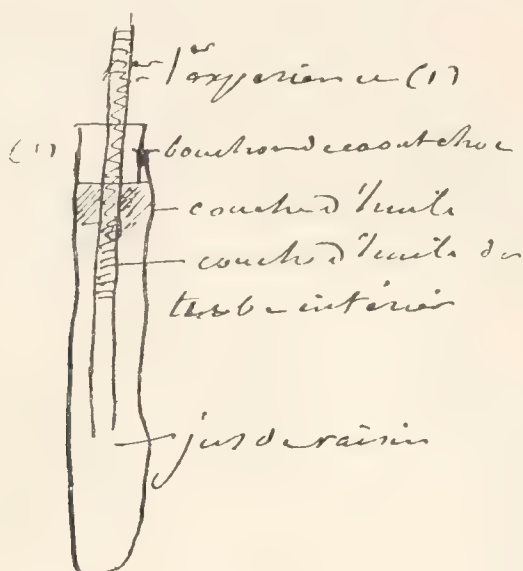 1er expérience (1)
(1) bouchon de caoutchouc
couche d'huile
couche d'huile du
tube intérieur
jus de raisin